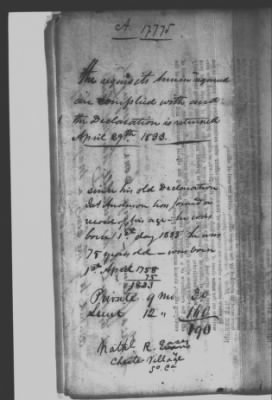 A. 17775
The requisite herein required
are complied with and
the Declaration is returned
April 29th 1833.
since his old Declaration
Jas Anderson has found a
record of his age - he was
born 1st day 1833 he was
75 years old - was born
1st April 1758
75
1833
Private 9 mo 30
Lieut 12 " 160
190
Nathl. R.
Chester Village
So. Ca